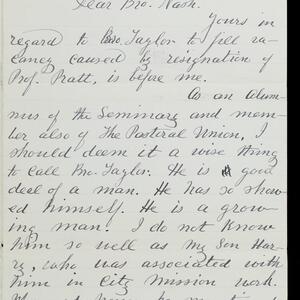 Dear Bro. Nash.
Yours in
regard to Bro. Taylor to fill va-
cancy caused by resignation of
Prof. Pratt, is before me.
As an alum-
nus of the Seminary and mem-
ber also of The Pastoral Union, I
should deem it a wise thing
to call Bro. Taylor. He is a good
deal of a man. He has so show-
ed himself. He is a grow-
ing man. I do not know
him so well as my Son Har-
ry, who was associated with
him in City Mission work.